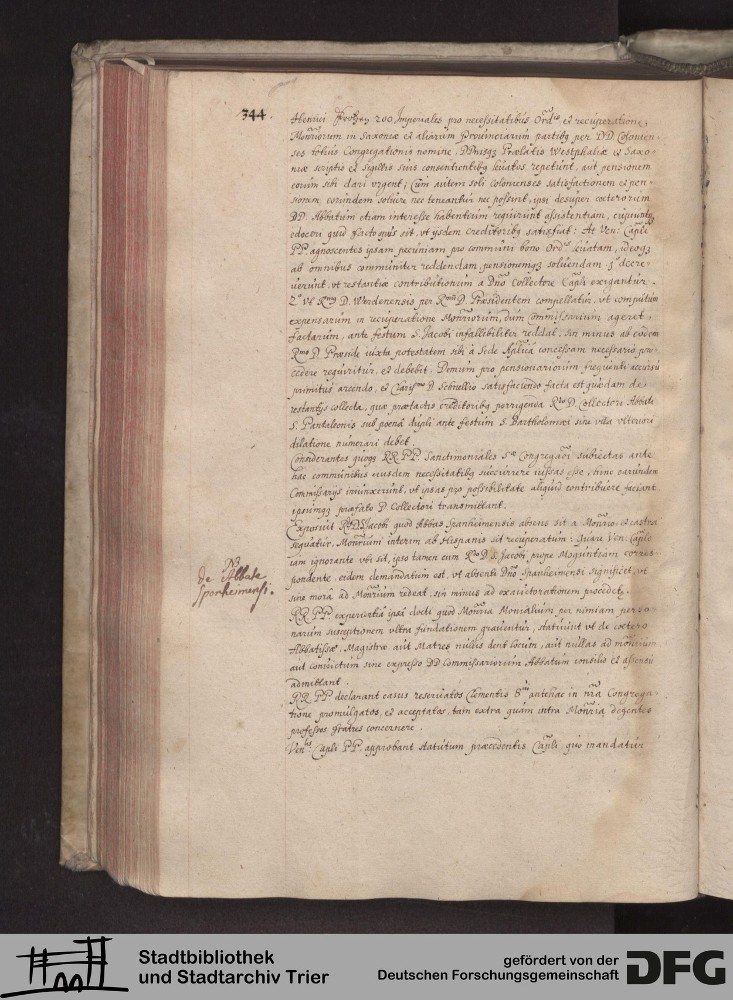 344.
Henrici 200 Imperiales pro necessitatibus Ord^is et recuperatione
Mon̄riorum in Saxoniæ et aliarum Provinciarum partibꝫ per DD Colonien-
ses totius Congregationis nomine, DD Prælatis Westphaliæ et Saxo-
niæ scriptis et sigillis suis consentientibꝫ repetunt, aut pensionem
eorum sibi dari urgent; Cum autem soli colonienses satisfactionem et pen-
sionem, eorundem solvere nec teneantur nec possint, ipsi desuper cæterorum
DD Abbatum etiam interesse habentium requirunt assistentiam,
edoceri quid facto opus sit, vt ijsdem Creditoribꝫ satisfiat: At Ven: Capli
PP. agnoscentes ipsam pecuniam pro communi bono Ord^is ideoqꝫ
ab omnibus communiter reddendam, pensionemqꝫ solvendam 1° decre-
verunt, vt restantiæ contributionum a Dno Collectore Capli exigantur.
2° Vt R^mus D. Werdenensis per R^mum D. Præsidentem compellatur, vt computum
expensarum in recuperatione Mon̄riorum, dum Commissarium ageret
factarum, ante festum S. Jacobi infallibiliter reddat, sin minus ab eodem
R^mo D. Præside iuxta potestatem sibi à Sede Aplica concessam necessario pro-
cedere requiritur, et debebit. Demum pro pensionariorum frequenti accursu
primitus arcendo, et Claris^mo D Schnellio satisfaciendo facta est quædam de
restantijs collecta, quæ præfactis creditoribꝫ porrigenda R^do D. Collectori Abbati
S. Pantaleonis sub poena dupli ante festum S. Bartholomæi sine vlla vlteriori
dilatione numerari debet.
Considerantes quoqꝫ RR. PP. Sanctimoniales Congregaōi subiectas ante
hac communibus eiusdem necessitatibꝫ succurrere iussas esse, hinc earundem
Commissarijs iniunxerunt, vt ipsas pro possibilitate aliquid contribuere faciant
ipsumqꝫ præfato D. Collectori transmittant.
Exposuit R^dus D S. Jacobi quod Abbas Spanheimensis absens sit a Mon̄rio, et castra
sequatur, Mon̄rium interim ab Hispanis sit recuperatum: Quare Ven. Caplo
iam ignorante vbi sit, ipso tamen cum R^do D. S. Jacobi prope Moguntiam corres-
pondente, eidem demandatum est, vt absenti Dno Spanheimensi significet, vt
sine mora ad Mon̄rium redeat, sin minus ad exauctorationem procedetʳ.
RR PP experientia ipsa docti quod Mon̄ria Monialium per nimiam perso-
narum susceptionem vltra fundationem graventur, statuunt vt de cætero
Abbatissæ, Magistræ aut Matres nullis dent locum, aut nullas ad mon̄rium
aut convictum sine expresso DD Commissariorum Abbatum consilio et assensu
admittant.
RR. PP. declarant casus reservatos Clementis 8^vi antehac in nr̄a Congrega-
tione promulgatos, et acceptatos, tam extra quàm intra Mon̄ria degentes
professos fratres concernere.
Ven^lis Capli PP. approbant statutum præcedentis Capli, quo mandatur
N^a
de Abbate
Sponheimensi.
Stadtbibliothek
und Stadtarchiv Trier
gefördert von der
Deutschen Forschungsgemeinschaft
DFG